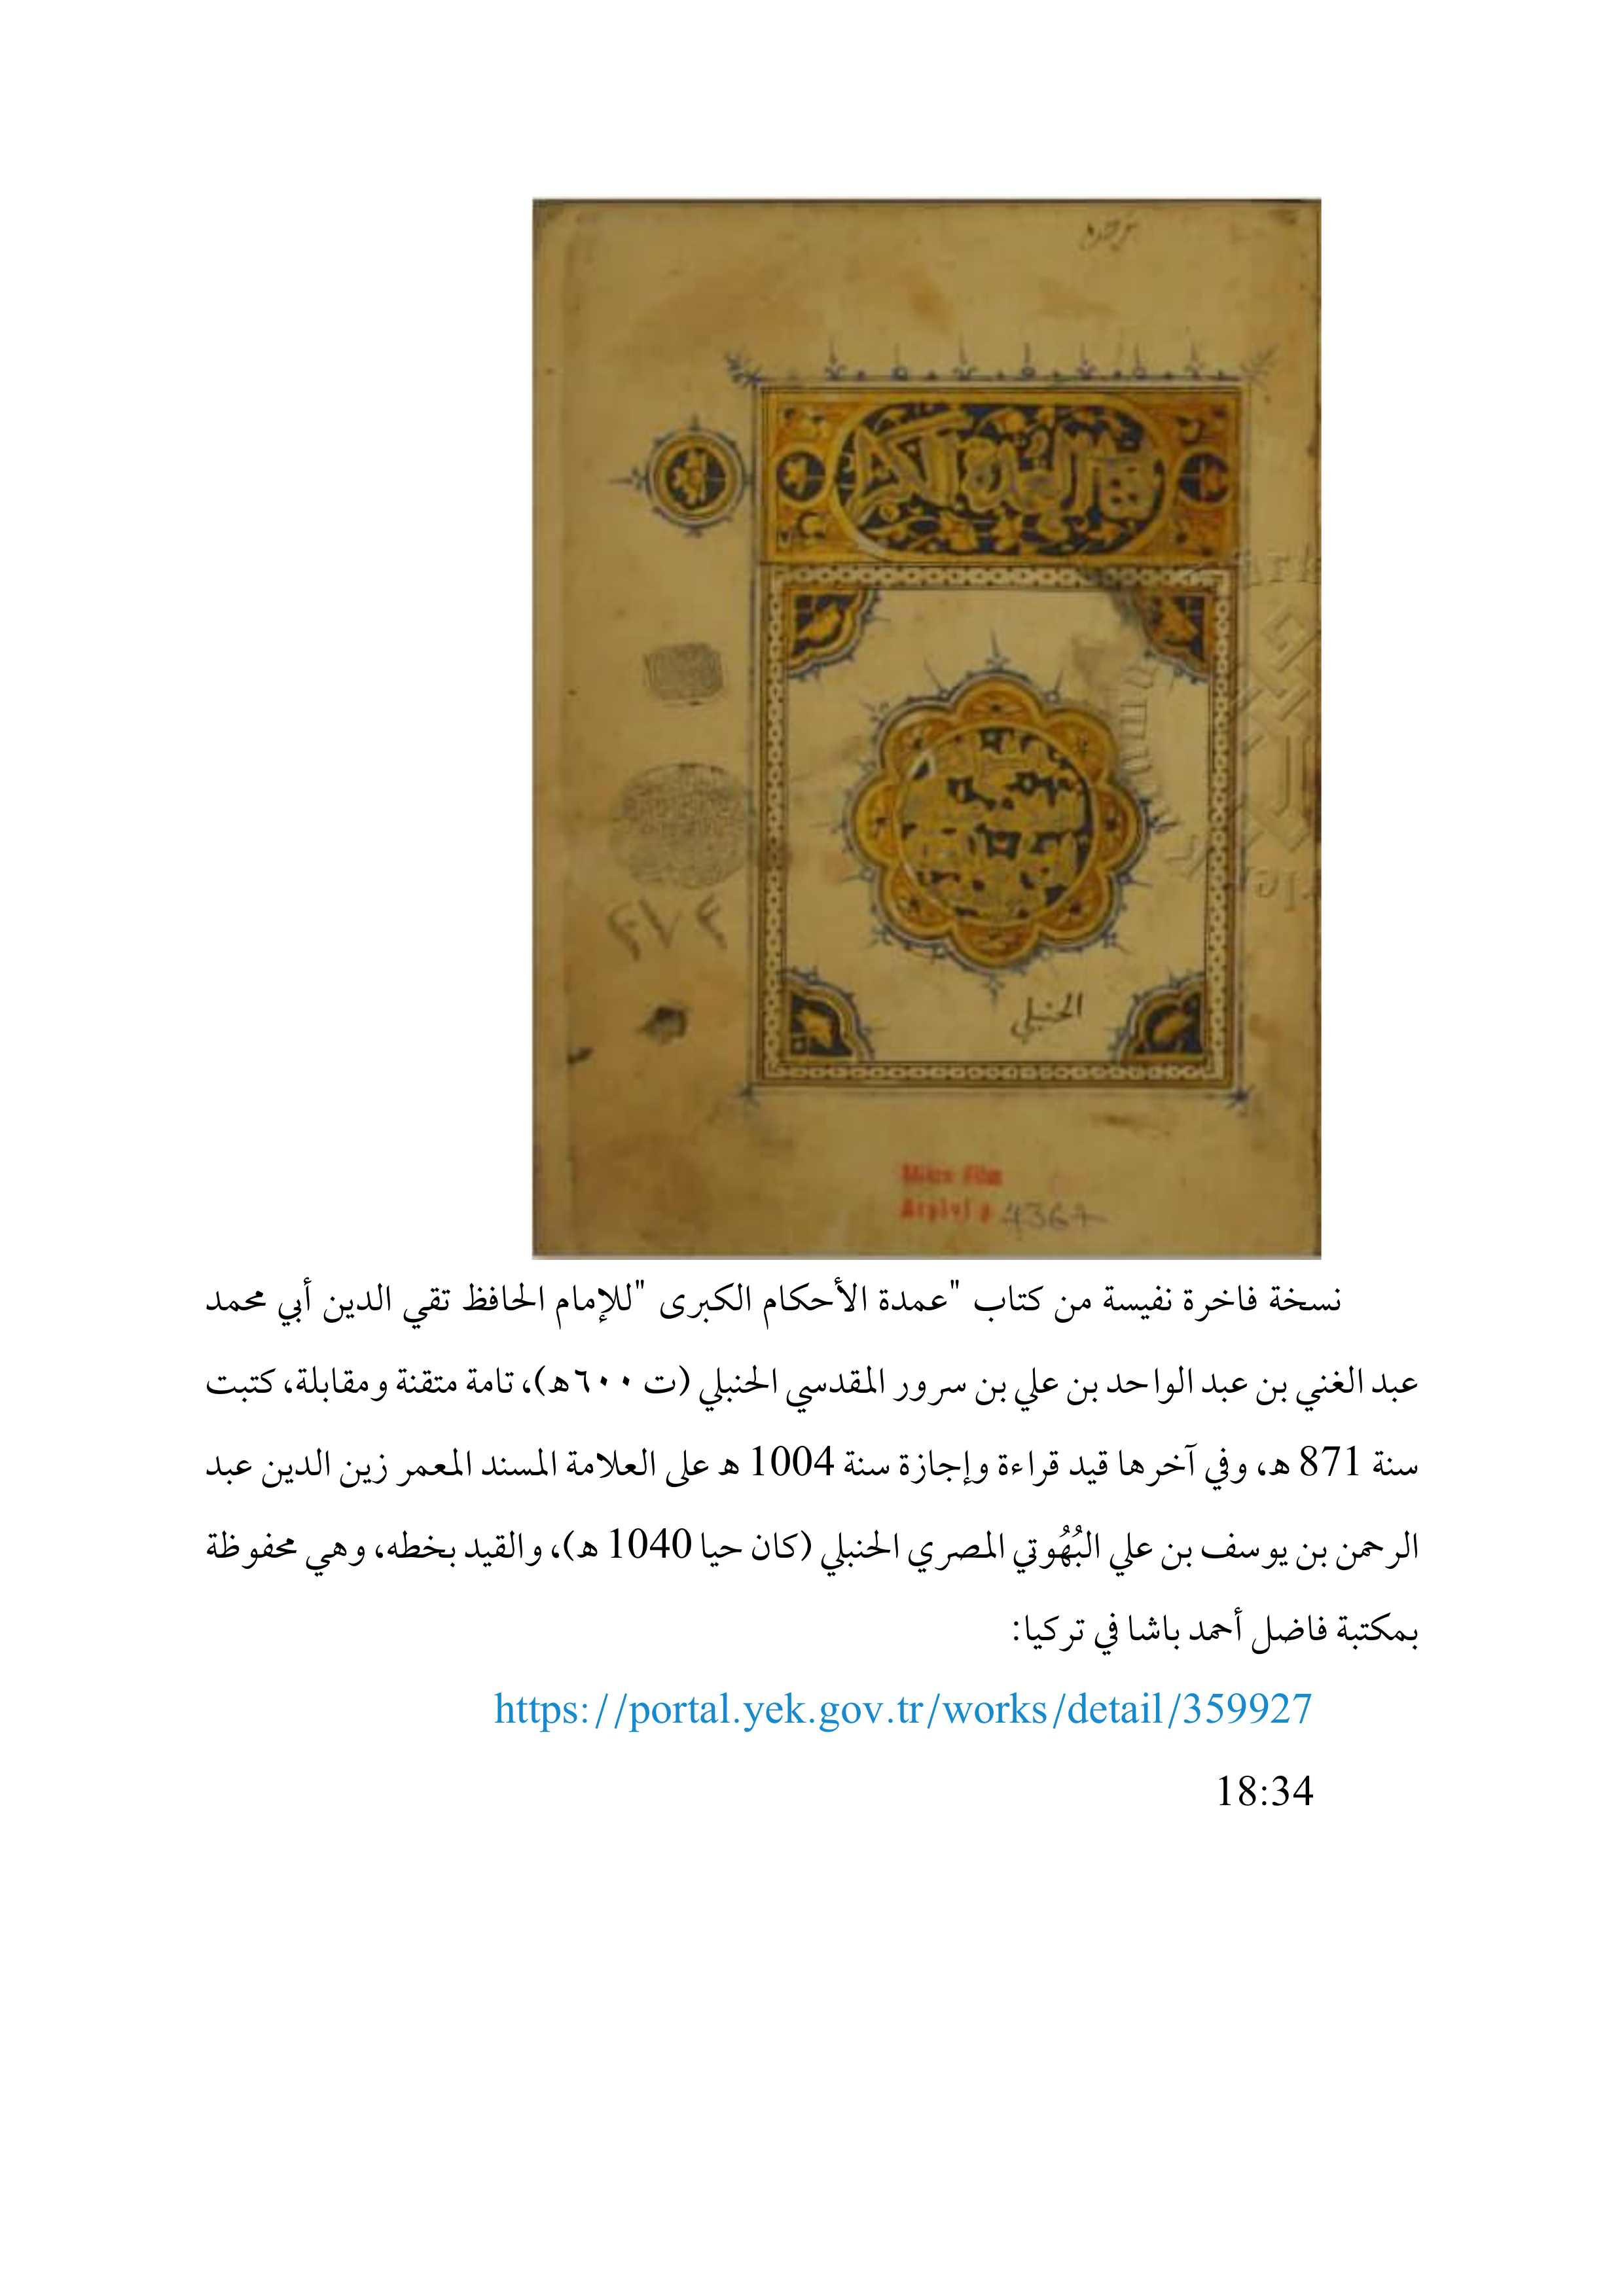 كتاب العمدة الكبرى
٢٧٢
الحنبلي
Mikro Film
Arşivi #
نسخة فاخرة نفيسة من كتاب "عمدة الأحكام الكبرى "للإمام الحافظ تقي الدين أبي محمد
عبد الغني بن عبد الواحد بن علي بن سرور المقدسي الحنبلي (ت ٦٠٠هـ)، تامة متقنة ومقابلة، كتبت
سنة 871 هـ، وفي آخرها قيد قراءة وإجازة سنة 1004 هـ على العلامة المسند المعمر زين الدين عبد
الرحمن بن يوسف بن علي البُهُوتي المصري الحنبلي (كان حيا 1040 هـ)، والقيد بخطه، وهي محفوظة
بمكتبة فاضل أحمد باشا في تركيا:
https://portal.yek.gov.tr/works/detail/359927
18:34